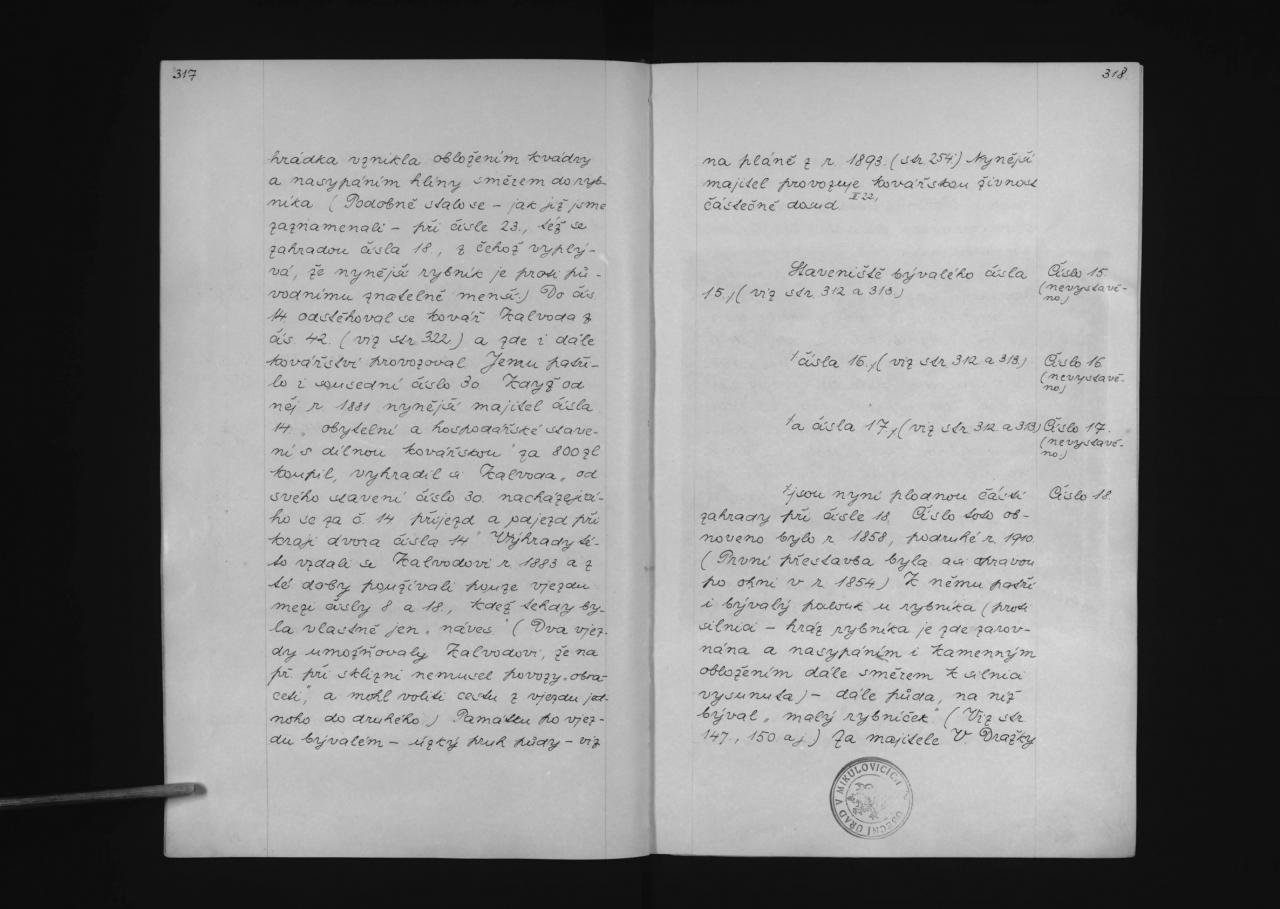 317
hrádka vznikla obložením kvádry
a nasypáním hlíny směrem do ryb-
níka (Podobně stalo se - jak již jsme
zaznamenali - při čísle 23., též se
zahradou čísla 18., z čehož vyplý-
vá, že nynější rybník je proti pů-
vodnímu znatelně menší.) Do čís.
14 odstěhoval se kovář Kalvoda z
čís. 42. (viz str. 322.) a zde i dále
kovářství provozoval. Jemu patři-
lo i sousední číslo 30. Když od
něj r. 1881 nynější majitel čísla
14. „obytelní a hospodářské stave-
ní s dílnou kovářskou" za 800 zl
koupil, vyhradil si Kalvoda „od
svého stavení číslo 30. nacházející-
ho se za č. 14 příjezd a odjezd při
kraji dvora čísla 14." Výhrady té-
to vzdali se Kalvodovi r. 1883 a z
té doby používali pouze vjezdu
mezi čísly 8 a 18., kdež tehdy by-
la vlastně jen „náves." (Dva vjez-
dy umožňovaly Kalvodovi, že na
př. při sklizni nemusel povozy „obra-
ceti", a mohl voliti cestu z vjezdu jed-
noho do druhého.) Památku po vjez-
du bývalém - úzký pruh půdy - viz
318
na pláně z r. 1893. (str. 254.) Nynější
majitel provozuje kovářskou živnost
částečně dosud.
Staveniště bývalého čísla
15., (viz str. 312 a 313.)
Číslo 15.
(nevystavě-
no.)
čísla 16., (viz str. 312 a 313.)
Číslo 16.
(nevystavě-
no.)
a čísla 17., (viz str. 312 a 313.)
Číslo 17.
(nevystavě-
no.)
jsou nyní plodnou částí
Číslo 18.
zahrady při čísle 18. Číslo toto ob-
noveno bylo r. 1858, podruhé r. 1910.
(První přestavba byla asi opravou
po ohni v r. 1854.) K němu patří
i bývalý palouk u rybníka (proti
silnici - hráz rybníka je zde zarov-
nána a nasypáním i kamenným
obložením dále směrem k silnici
vysunuta) - dále půda, na níž
býval „malý rybníček." (Viz str.
147., 150 aj.) Za majitele V. Dražky
OBECNÍ ÚŘAD V MIKULOVICÍCH